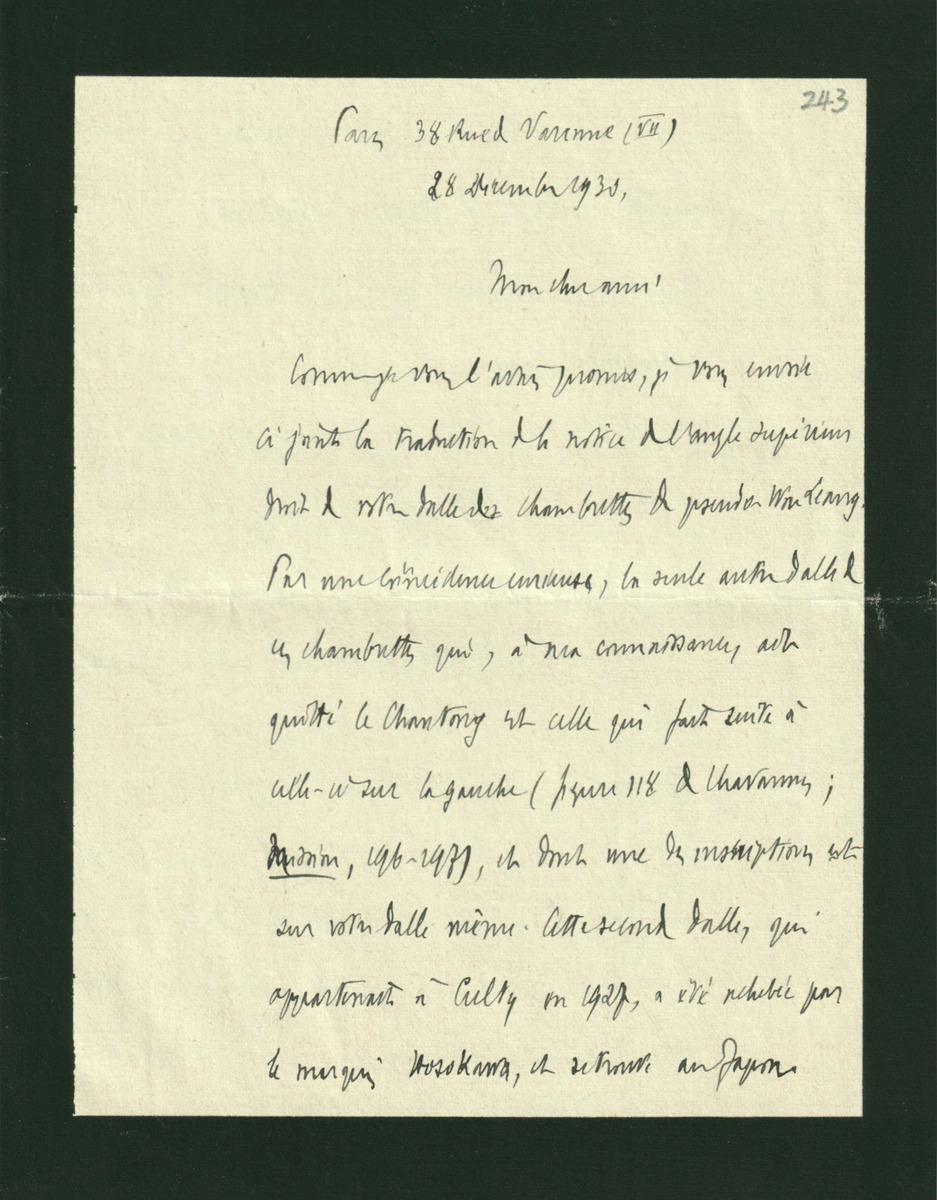 243
Paris 38 Rue de Varenne (VII)
28 Décembre 1930,
Mon cher ami
Comme je vous l'avais promis, je vous envoie
ci joint la traduction de la notice de l'angle supérieur
droit de votre dalle des chambrettes de pseudo Wou Leang.
Par une coïncidence curieuse, la seule autre dalle de
ces chambrettes qui, à ma connaissance, ait
quitté le Chantong est celle qui fait suite à
celle-ci sur la gauche (figure 118 de Chavannes;
Mission, 196-197), et dont une des inscriptions est
sur votre dalle même. Cette seconde dalle, qui
appartenait à en 1927, a été achetée par
le marquis Hosokawa, et se trouve au Japon.